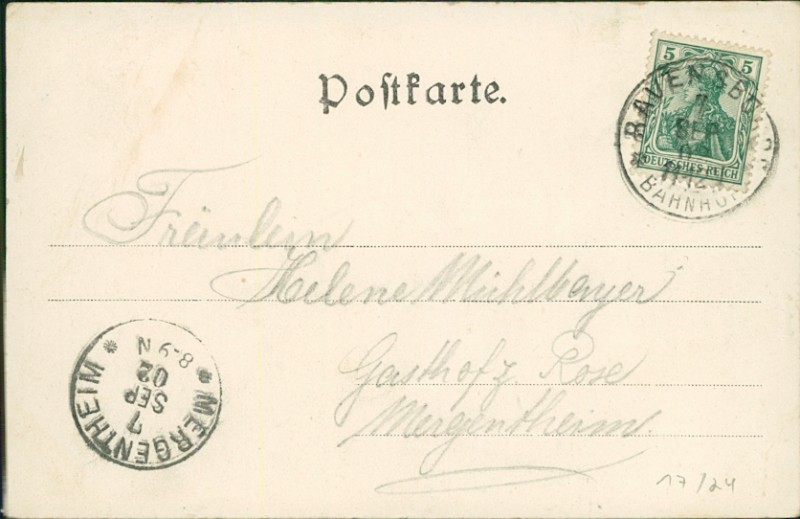 Postkarte.
5 5
DEUTSCHES REICH
RAVENSBURG
7
SEP
11-12
BAHNHOF
Fräulein
Helene Mühlbayer
Gasthof z Rose
Mergentheim.
MERGENTHEIM
7
SEP
02
8-9 N
17/24